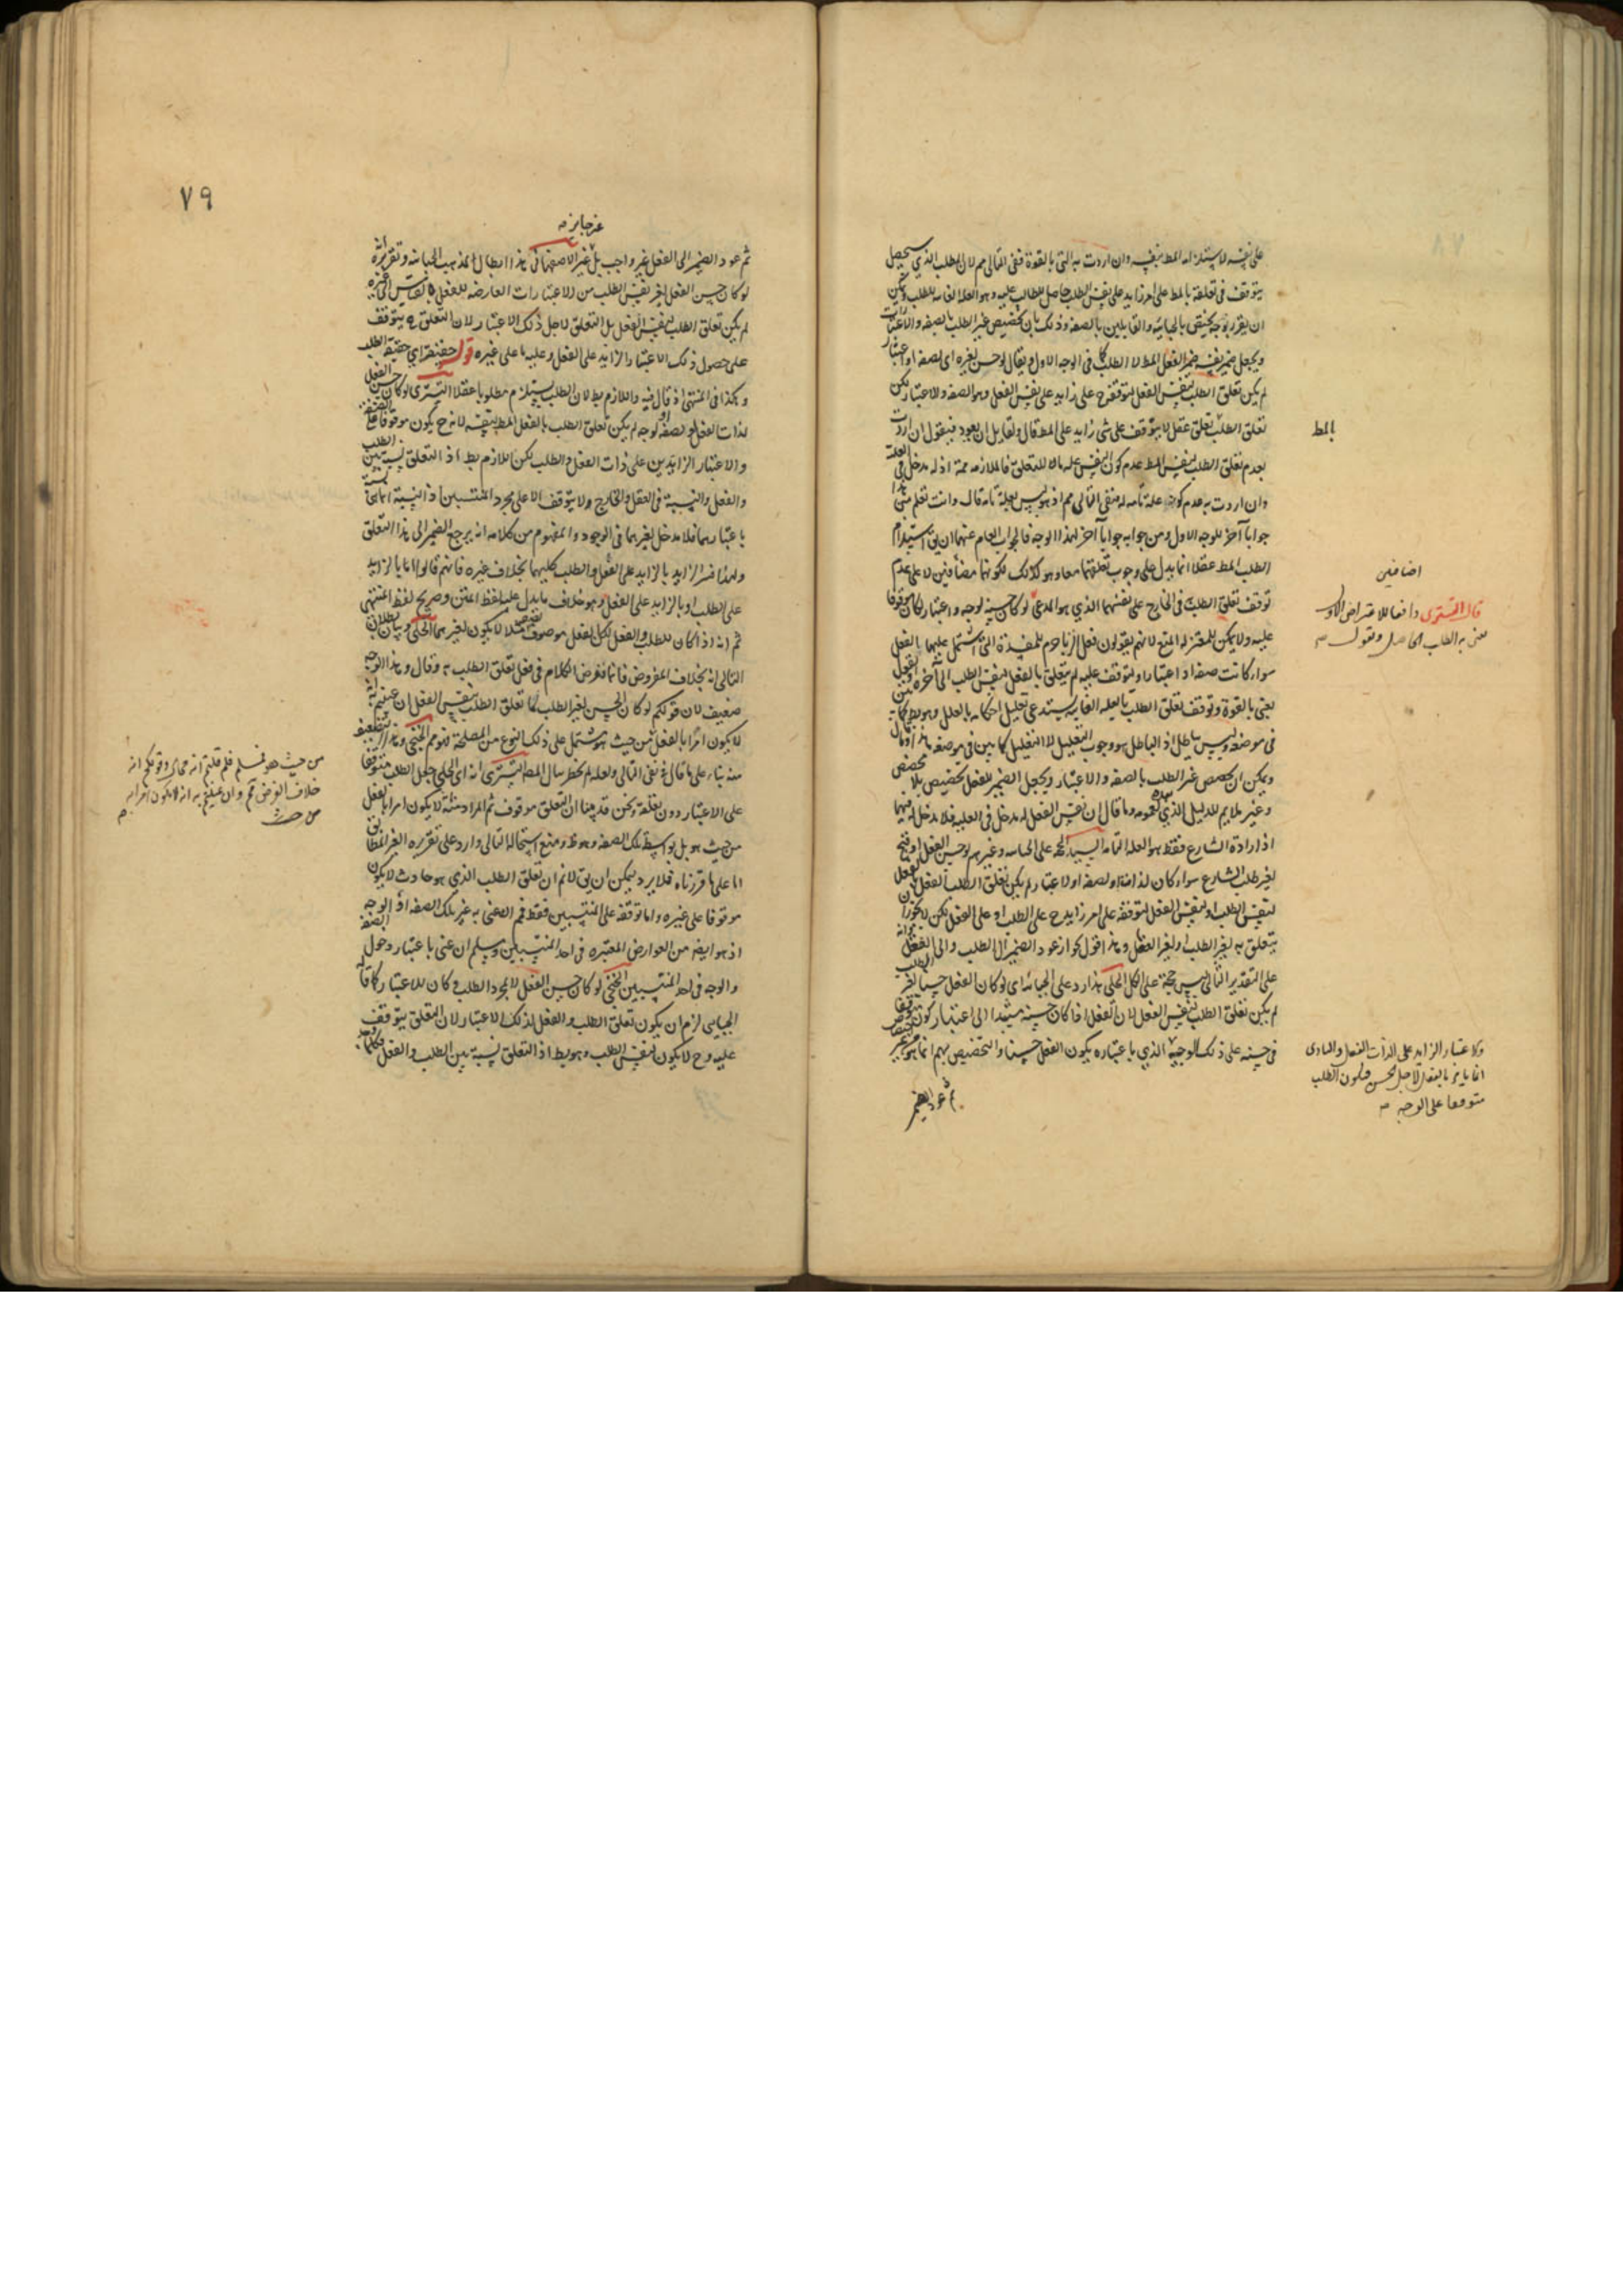 على نفسه لاستلزامه المط بنفسه وان اردت به التى بالقوة ففى التالى مم لان الطلب الذي سيحصل
يتوقف فى تعلقه بالمط على امر زايد على نفس الطلب حاصل للطالب عليه وهو العلة الغايه للطلب ويمكن
ان يقرر بوجه يختص بالجبائيه والقايلين بالصفه وذلك بان تخصيص غير الطلب بالصفه والاعتبارات
ويجعل ضمير نفسه ضمير الفعل المط لا الطلب كما فى الوجه الاول ويقال لو حسن لغيره اى لصفه او اعتبار
لم يكن تعلق الطلب بنفس الفعل لتوقفه ح على زايد على نفس الفعل وهو الصفه والاعتبار لكن
تعلق الطلب تعلق عقلى لا يتوقف على شئ زايد على المط قال ولقايل ان يعود فيقول ان اردت
بعدم تعلق الطلب بنفس المط عدم كون النفس علة ما للتعلق فالملازمه ممه اذ له مدخل فى العلة
وان اردت به عدم كونه علة تامه له فنفى التالى مم اذ هو ليس بعلة تامه قال وانت تعلم من هذا
جوابا آخر للوجه الاول ومن جوابه جوابا آخر لهذا الوجه فالجواب العام عنهما ان يق استلزام
الطلب المط عقلا انما يدل على وجوب تعلقهما معا وهو كذلك لكونهما مضافين لا على عدم
توقف تعلق الطلب فى الخارج على نفسهما الذي هو المدعى لو كان حسنه لوجه واعتبار لكان موقوفا
عليه ولا يمكن للمعتزله المنع لانهم يقولون فعل الزنا حرم للمفسدة التى اشتمل عليها الفعل
سواء كانت صفه او اعتبارا ولتوقف عليه لم يتعلق بالفعل لنفس الطلب الى آخره
يعنى بالقوة وتوقف تعلق الطلب بالعلة الغايه يستدعى تعليل احكامه بالعلل وهو بط كما بين
فى موضعه وليس بباطل اذ الباطل هو وجوب التعليل لا التعليل كما بين فى موضعه
ويمكن ان يخصص غير الطلب بالصفه والاعتبار ويجعل الضمير للفعل تخصيص بلا مخصص
وغير ملايم للدليل الذي وما قال ان نفس الفعل له مدخل فى العلية فلا مدخل له فيها
اذ ارادة الشارع فقط هو العلة التامه السيد الحجة على الجبائيه وغيرهم لو حسن الفعل او قبح
لغير طلب الشارع سواء كان لذاته او لصفه او لاعتبار لم يكن تعلق الطلب بالفعل
لنفس الطلب او لنفس الفعل لتوقفه على امر زايد ح على الطلب او على الفعل لكن لا يجوز ان
يتعلق به لغير الطلب او لغير الفعل وهذا اقول لجواز عود الضمير الى الطلب والى الفعل
على التقدير الثانى ليس حجة على الكل الحلى هذا رد على الجبائيه اى لو كان الفعل حسنا لغير الطلب
لم يكن تعلق الطلب بنفس الفعل لان الفعل اذا كان حسنه مستندا الى اعتبار كون
فى حسنه على ذلك الوجه الذي باعتباره يكون الفعل حسنا والتخصيص بهم انما هو
ثم عود الضمير
بالمط
اضافين
قال التسترى دافعا للاعتراض الاول
نعنى به الطلب الحاصل ونقول صه
والاعتبار الزايد على الذات الفعل والبادى
انما يامر بالفعل لاجل الحسن فيكون الطلب
متوقفا على الوجه صه
٧٩
غير جايز صه
ثم عود الضمير الى الفعل غير واجب بل غير الاصفهانى هذا ابطال لمذهب الجبائيه وتقريره انه
لو كان حسن الفعل لغير نفس الطلب من الاعتبارات العارضه للفعل بالقياس الى غيره
لم يكن تعلق الطلب لنفس الفعل بل التعلق لاجل ذلك الاعتبار لان التعلق ح يتوقف
على حصول ذلك الاعتبار الزايد على الفعل وعليه ما على غيره قوله حقيقته اي حقيقة الطلب
وهكذا فى المنتهى اذ قال فيه واللازم بط لان الطلب يستلزم مطلوبا عقلا التسترى لو كان حسن الفعل
لذات الفعل او لصفه او لوجه لم يكن تعلق الطلب بالفعل المط لنفسه لانه ح يكون موقوفا على الصفه
والاعتبار الزايدين على ذات الفعل والطلب لكن اللازم بط اذ التعلق نسبة بين الطلب
والفعل والنسبة فى العقل والخارج ولا يتوقف الا على مجرد المنتسبين اذ النسبة انما هى
باعتبارهما فلا مدخل لغيرهما فى الوجود والمفهوم من كلامه انه يرجع الضمير الى هذا التعلق
ولهذا فسر الزايد بالزايد على الفعل والطلب كليهما بخلاف غيره فانهم قالوا اما بالزايد
على الطلب او بالزايد على الفعل وهو خلاف ما يدل عليه لفظ المتن وصريح لفظ المنتهى
ثم انه اذا كان للطلب والفعل لكل فعل موصوف لا يكون لغيرهما الحلى وبيان بطلان
التالى انه بخلاف المفروض فانا نفرض الكلام فى فعل تعلق الطلب به وقال وهذا الوجه
ضعيف لان قولكم لو كان الحسن لغير الطلب لما تعلق الطلب بنفس الفعل ان عنيتم به انه
لا يكون امرا بالفعل من حيث هو مشتمل على ذلك النوع من المصلحة فمم الخنجى وهذا التضعيف
منه بناء على ما قال فى نفى التالى ولعله لم يخطر ببال المط التسترى انه اى الحلى جعل الطلب متوقفا
على الاعتبار دون تعلقه ونحن قد بينا ان التعلق موقوف ثم المراد منه انه لا يكون امرا بالفعل
من حيث هو بل بواسطة تلك الصفه وهو ظ ومنع استحالة التالى وارد على تقريره الغير المطابق
اما على ما قررناه فلا يرد ويمكن ان يق لا نم ان تعلق الطلب الذي هو حادث لا يكون
موقوفا على غيره واما توقفه على المنتسبين فقط فمم اعنى به غير تلك الصفه او الوجه
اذ هو ايضا من العوارض المعتبره فى احد المنتسبين ومسلم ان عنى باعتبار دخول الصفه
والوجه فى احد المنتسبين الخنجى لو كان حسن الفعل لا لمجرد الطلب وكان للاعتبار كما قاله
الجبايى لزم ان يكون تعلق الطلب والفعل لذلك الاعتبار لان التعلق يتوقف
عليه وح لا يكون لنفس الطلب وهو بط اذ التعلق نسبة بين الطلب والفعل
من حيث هو فمسلم فلم قلتم انه محال وقولكم انه
خلاف الفرض قلنا مم وان عنيتم به انه لا يكون امرا به
من حيث